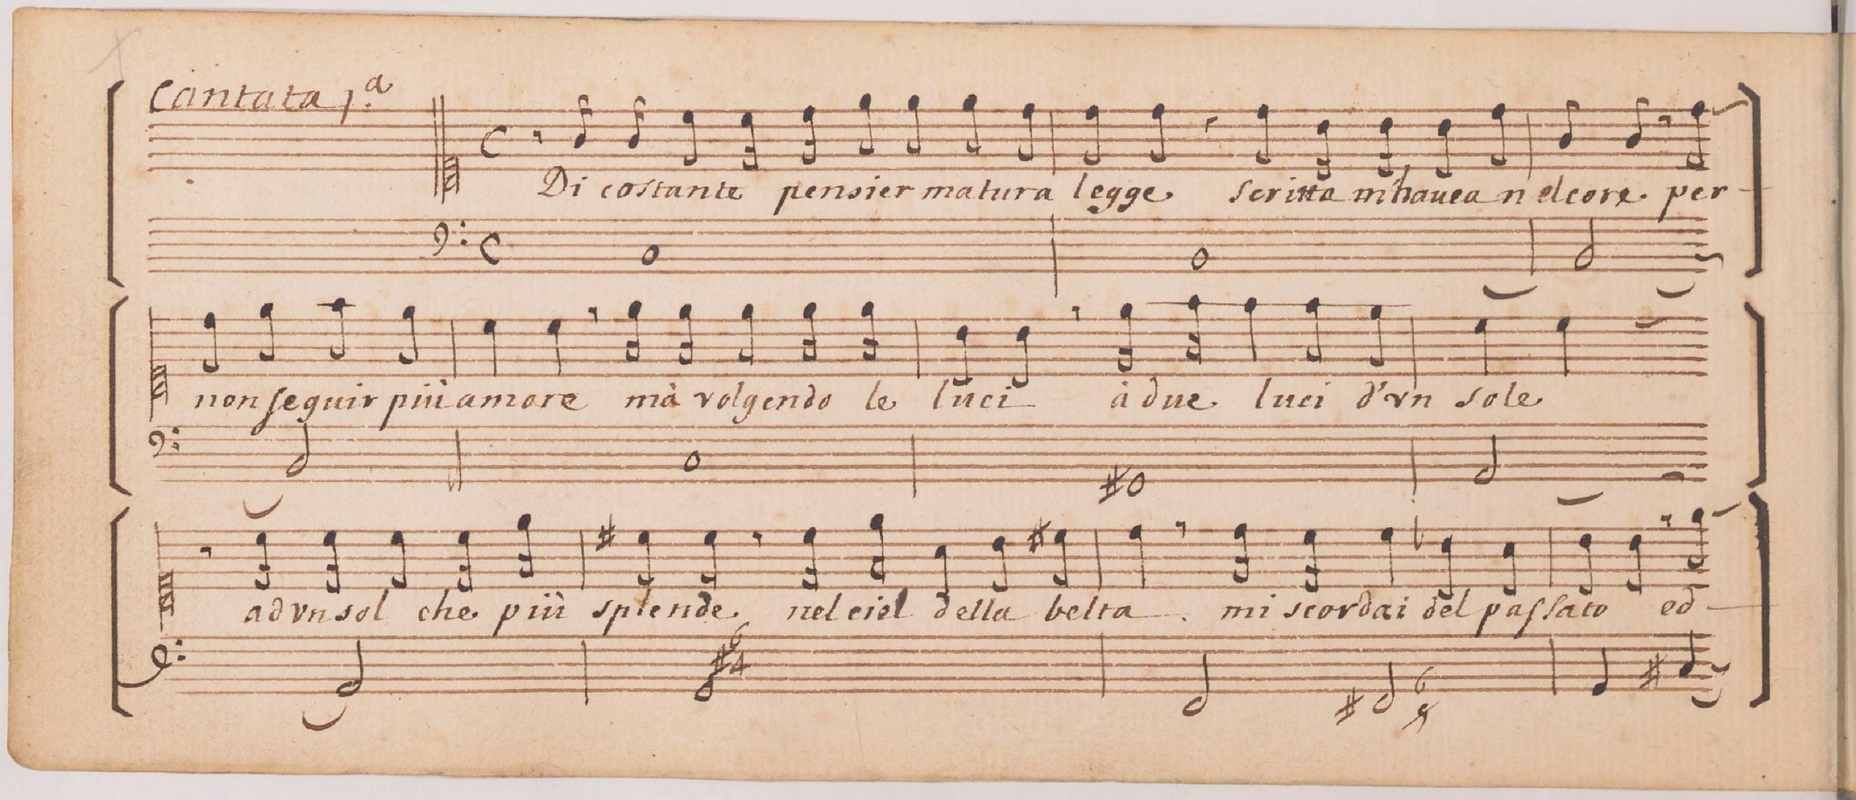 Cantata 1.ª
Di costante pensier matura legge scritta m'hauea nel core per
non seguir più amore mà volgendo le luci à due luci d'vn sole
ad vn sol che più splende nel ciel della belta. mi scordai del passato ed
6
#4
6